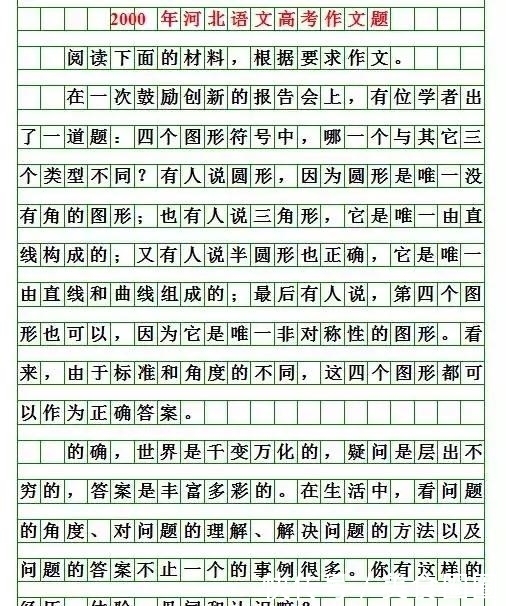 2000 年河北语文高考作文题
阅读下面的材料，根据要求作文。
在一次鼓励创新的报告会上，有位学者出
了一道题：四个图形符号中，哪一个与其它三
个类型不同？有人说圆形，因为圆形是唯一没
有角的图形；也有人说三角形，它是唯一由直
线构成的；又有人说半圆形也正确，它是唯一
由直线和曲线组成的；最后有人说，第四个图
形也可以，因为它是唯一非对称性的图形。看
来，由于标准和角度的不同，这四个图形都可
以作为正确答案。
的确，世界是千变万化的，疑问是层出不
穷的，答案是丰富多彩的。在生活中，看问题
的角度、对问题的理解、解决问题的方法以及
问题的答案不止一个的事例很多。你有这样的